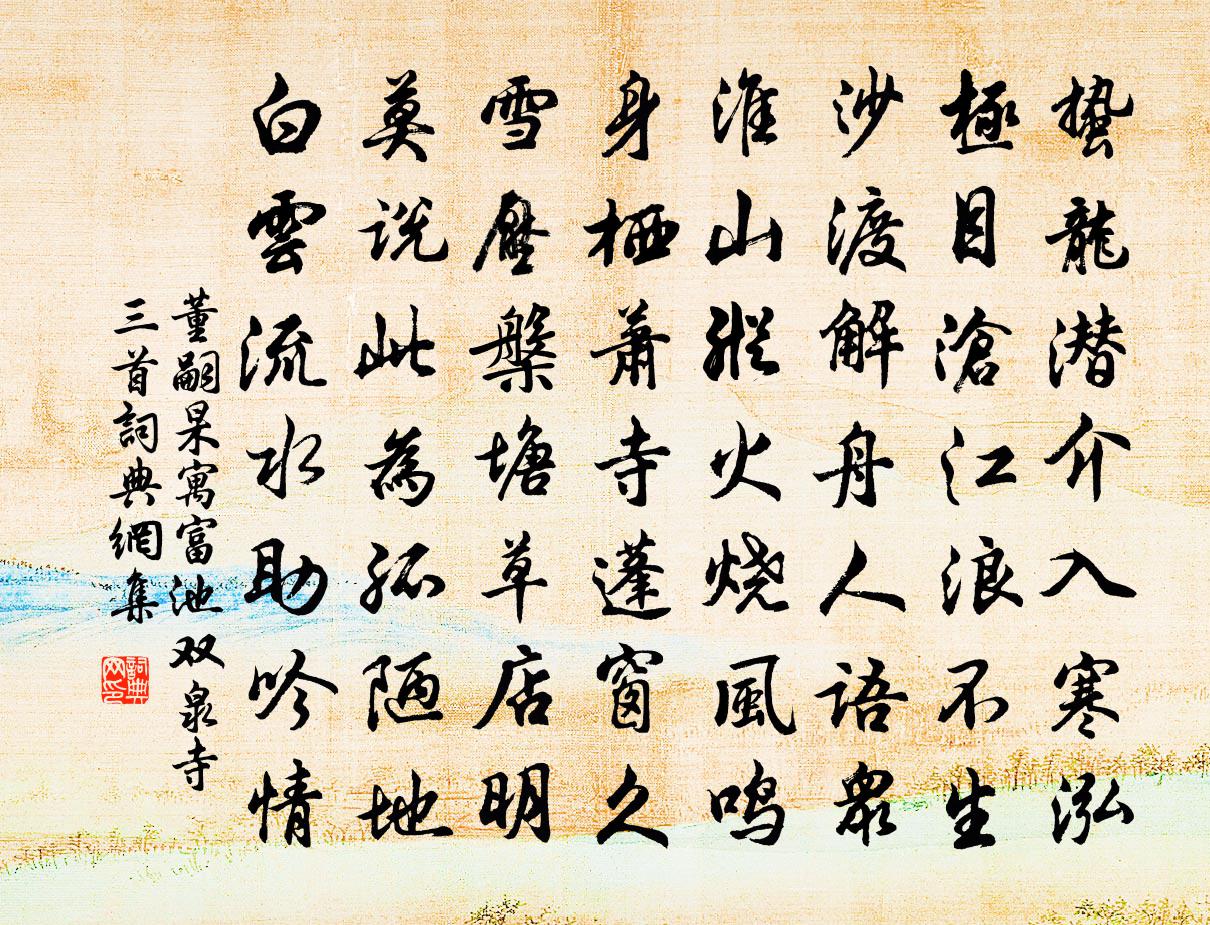 蟄龍潜介入寒泓
極目滄江浪不生
沙渡解舟人语眾
淮山縱火烧風鸣
身栖萧寺蓬窗久
雪壓槃塘草店明
莫说此為孤陋地
白雲流水助吟情
董嗣杲寓富池双泉寺
三首詞典網集
詞典网印